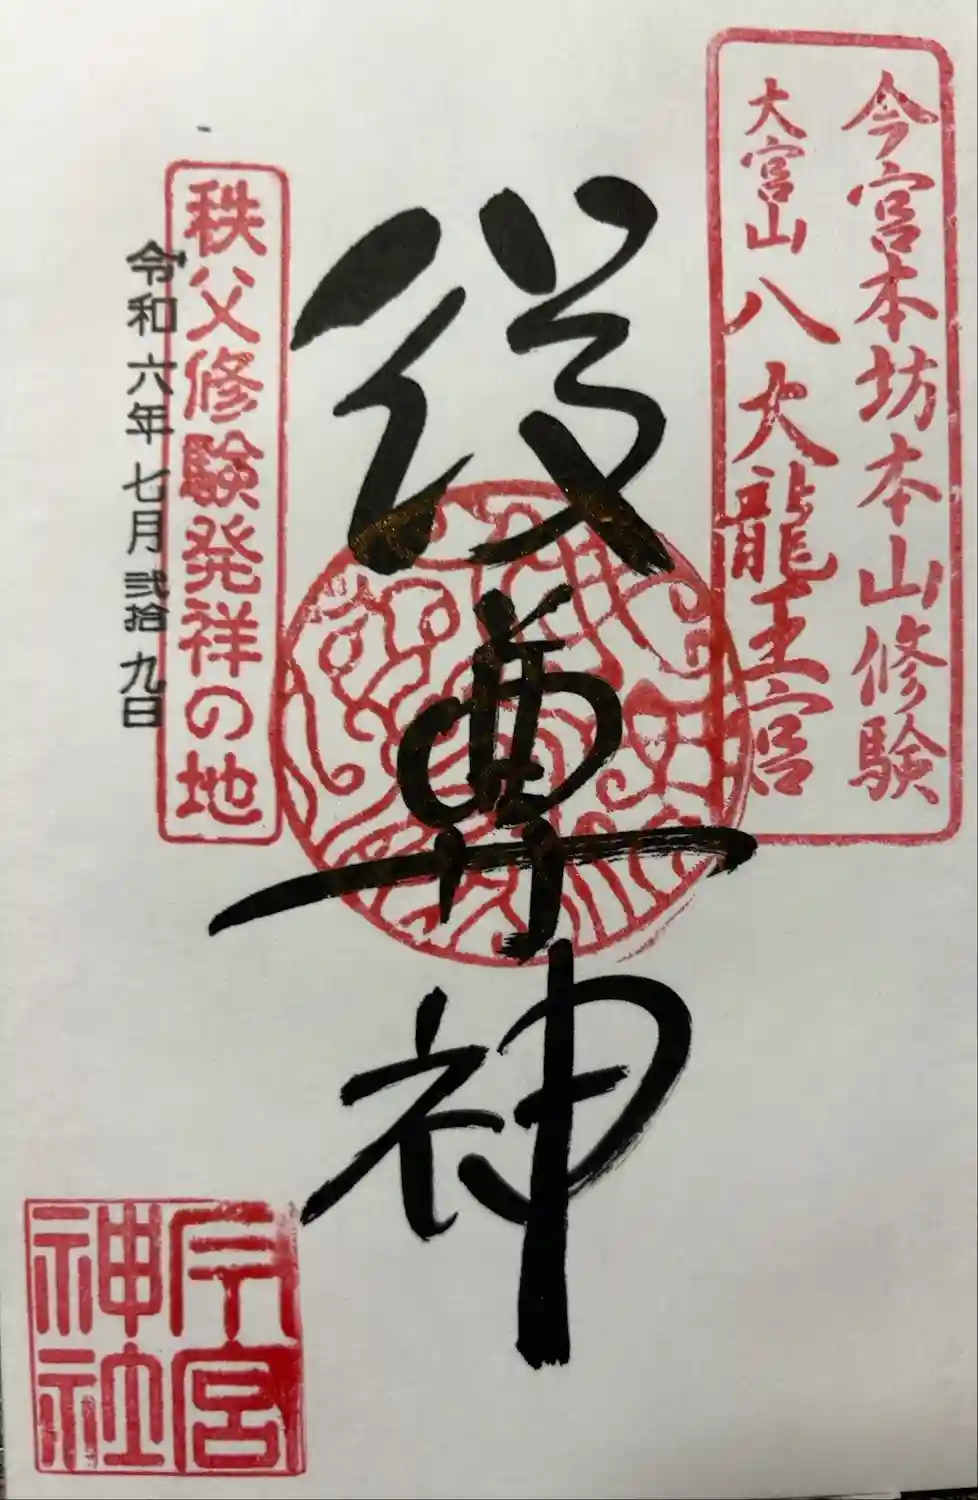 今宮本坊本山修験
大宮山八大龍王宮
役尊神
秩父修験発祥の地
令和六年七月弐拾九日
今宮
神社